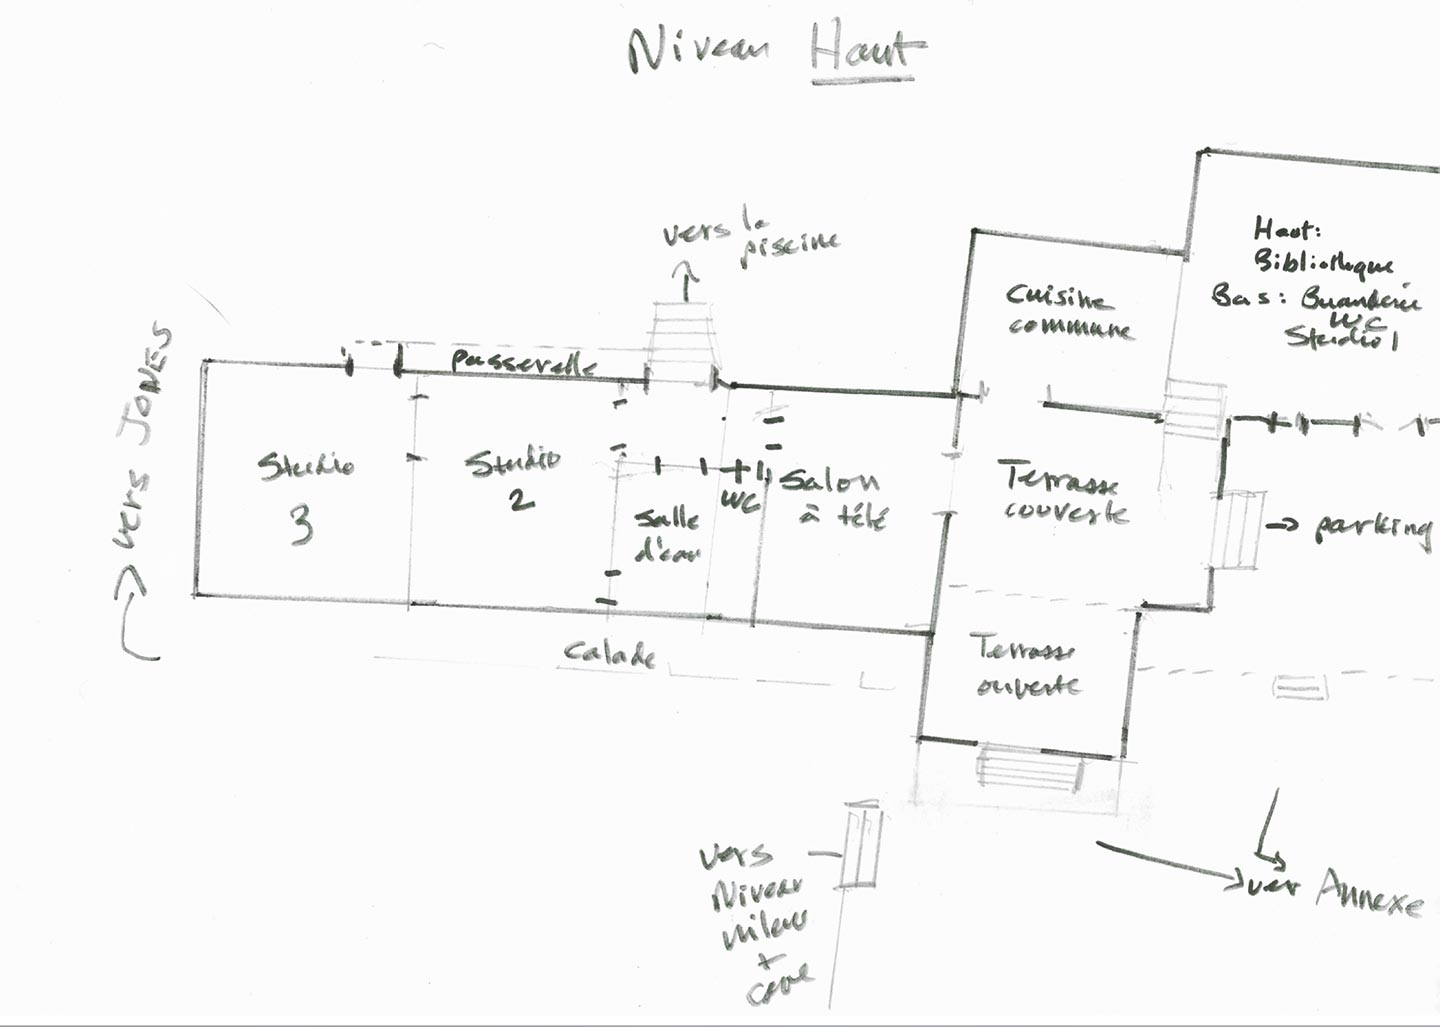 Niveau Haut
vers la
piscine
Haut:
Bibliothèque
Bas: Buanderie
WC
Studio 1
Cuisine
commune
passerelle
vers JONES
Studio
3
Studio
2
Salle
d'eau
WC
Salon
à télé
Terrasse
couverte
parking
Calade
Terrasse
ouverte
vers
Niveau
milieu
+
cave
vers Annexe